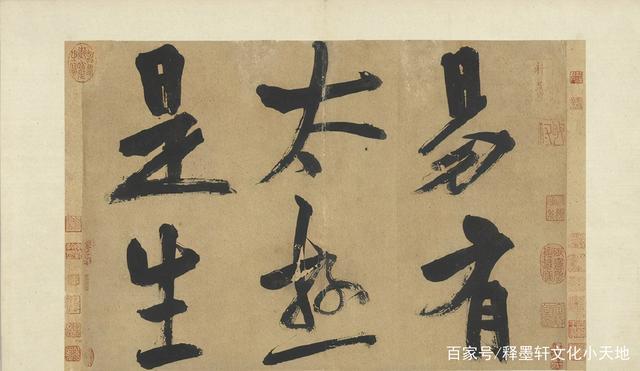 易有
太極
是生
百家号/释墨轩文化小天地